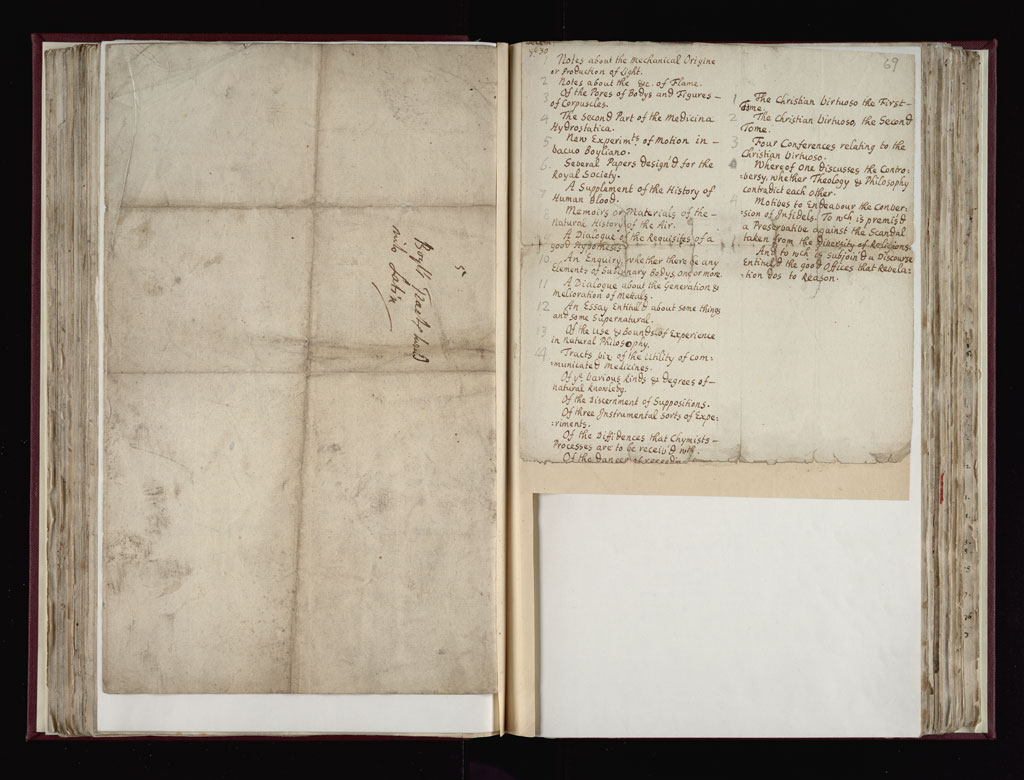 5
Boyl's Treat: should
into Latin
69
Notes about the Mechanical Origine
or Production of Light.
2 Notes about the &c. of Flame.
3 Of the Pores of Bodys and Figures –
of Corpuscles.
4 The Second Part of the Medicina
Hydrostatica.
5 New Experimts. of Motion in –
vacuo Boyliano.
6 Several Papers design'd for the
Royal Society.
7 A Supplament of the History of
Human Blood.
8 Memoirs or Materials of the –
Natural History of the Air.
A Dialogue of the Requisites of a
good Hypothesis.
10 An Enquiry, whether there be any
Elements of Sublunary Bodys, one or more.
11 A Dialogue about the Generation &
Melioration of Metals.
12 An Essay Entitul'd about some things
and some Supernatural.
13 Of the Use & Bounds of Experience
in Natural Philosophy.
14 Tracts viz of the Utility of Com:
:municated Medicines.
Of ye. Various Kinds & degrees of –
natural Knowledg.
Of the Discernment of Suppositions.
Of three Instrumental Sorts of Expe:
:riments.
Of the Diffidences that Chymists –
Processes are to be receiv'd wth.
Of the danger of
1 The Christian Virtuoso the First –
Tome.
2 The Christian Virtuoso, the Second
Tome.
3 Four Conferences relating to the
Christian Virtuoso.
Whereof One discusses the Contro:
:versy, whether Theology & Philosophy
contradict each other.
4 Motives to Endeavour the Conver:
:sion of Infidels. To wch is premis'd
a Preservative against the Scandal
taken from the Diversity of Religions.
And to wch is Subjoin'd a Discourse
Entitul'd the good Offices that Revela:
:tion dos to Reason.